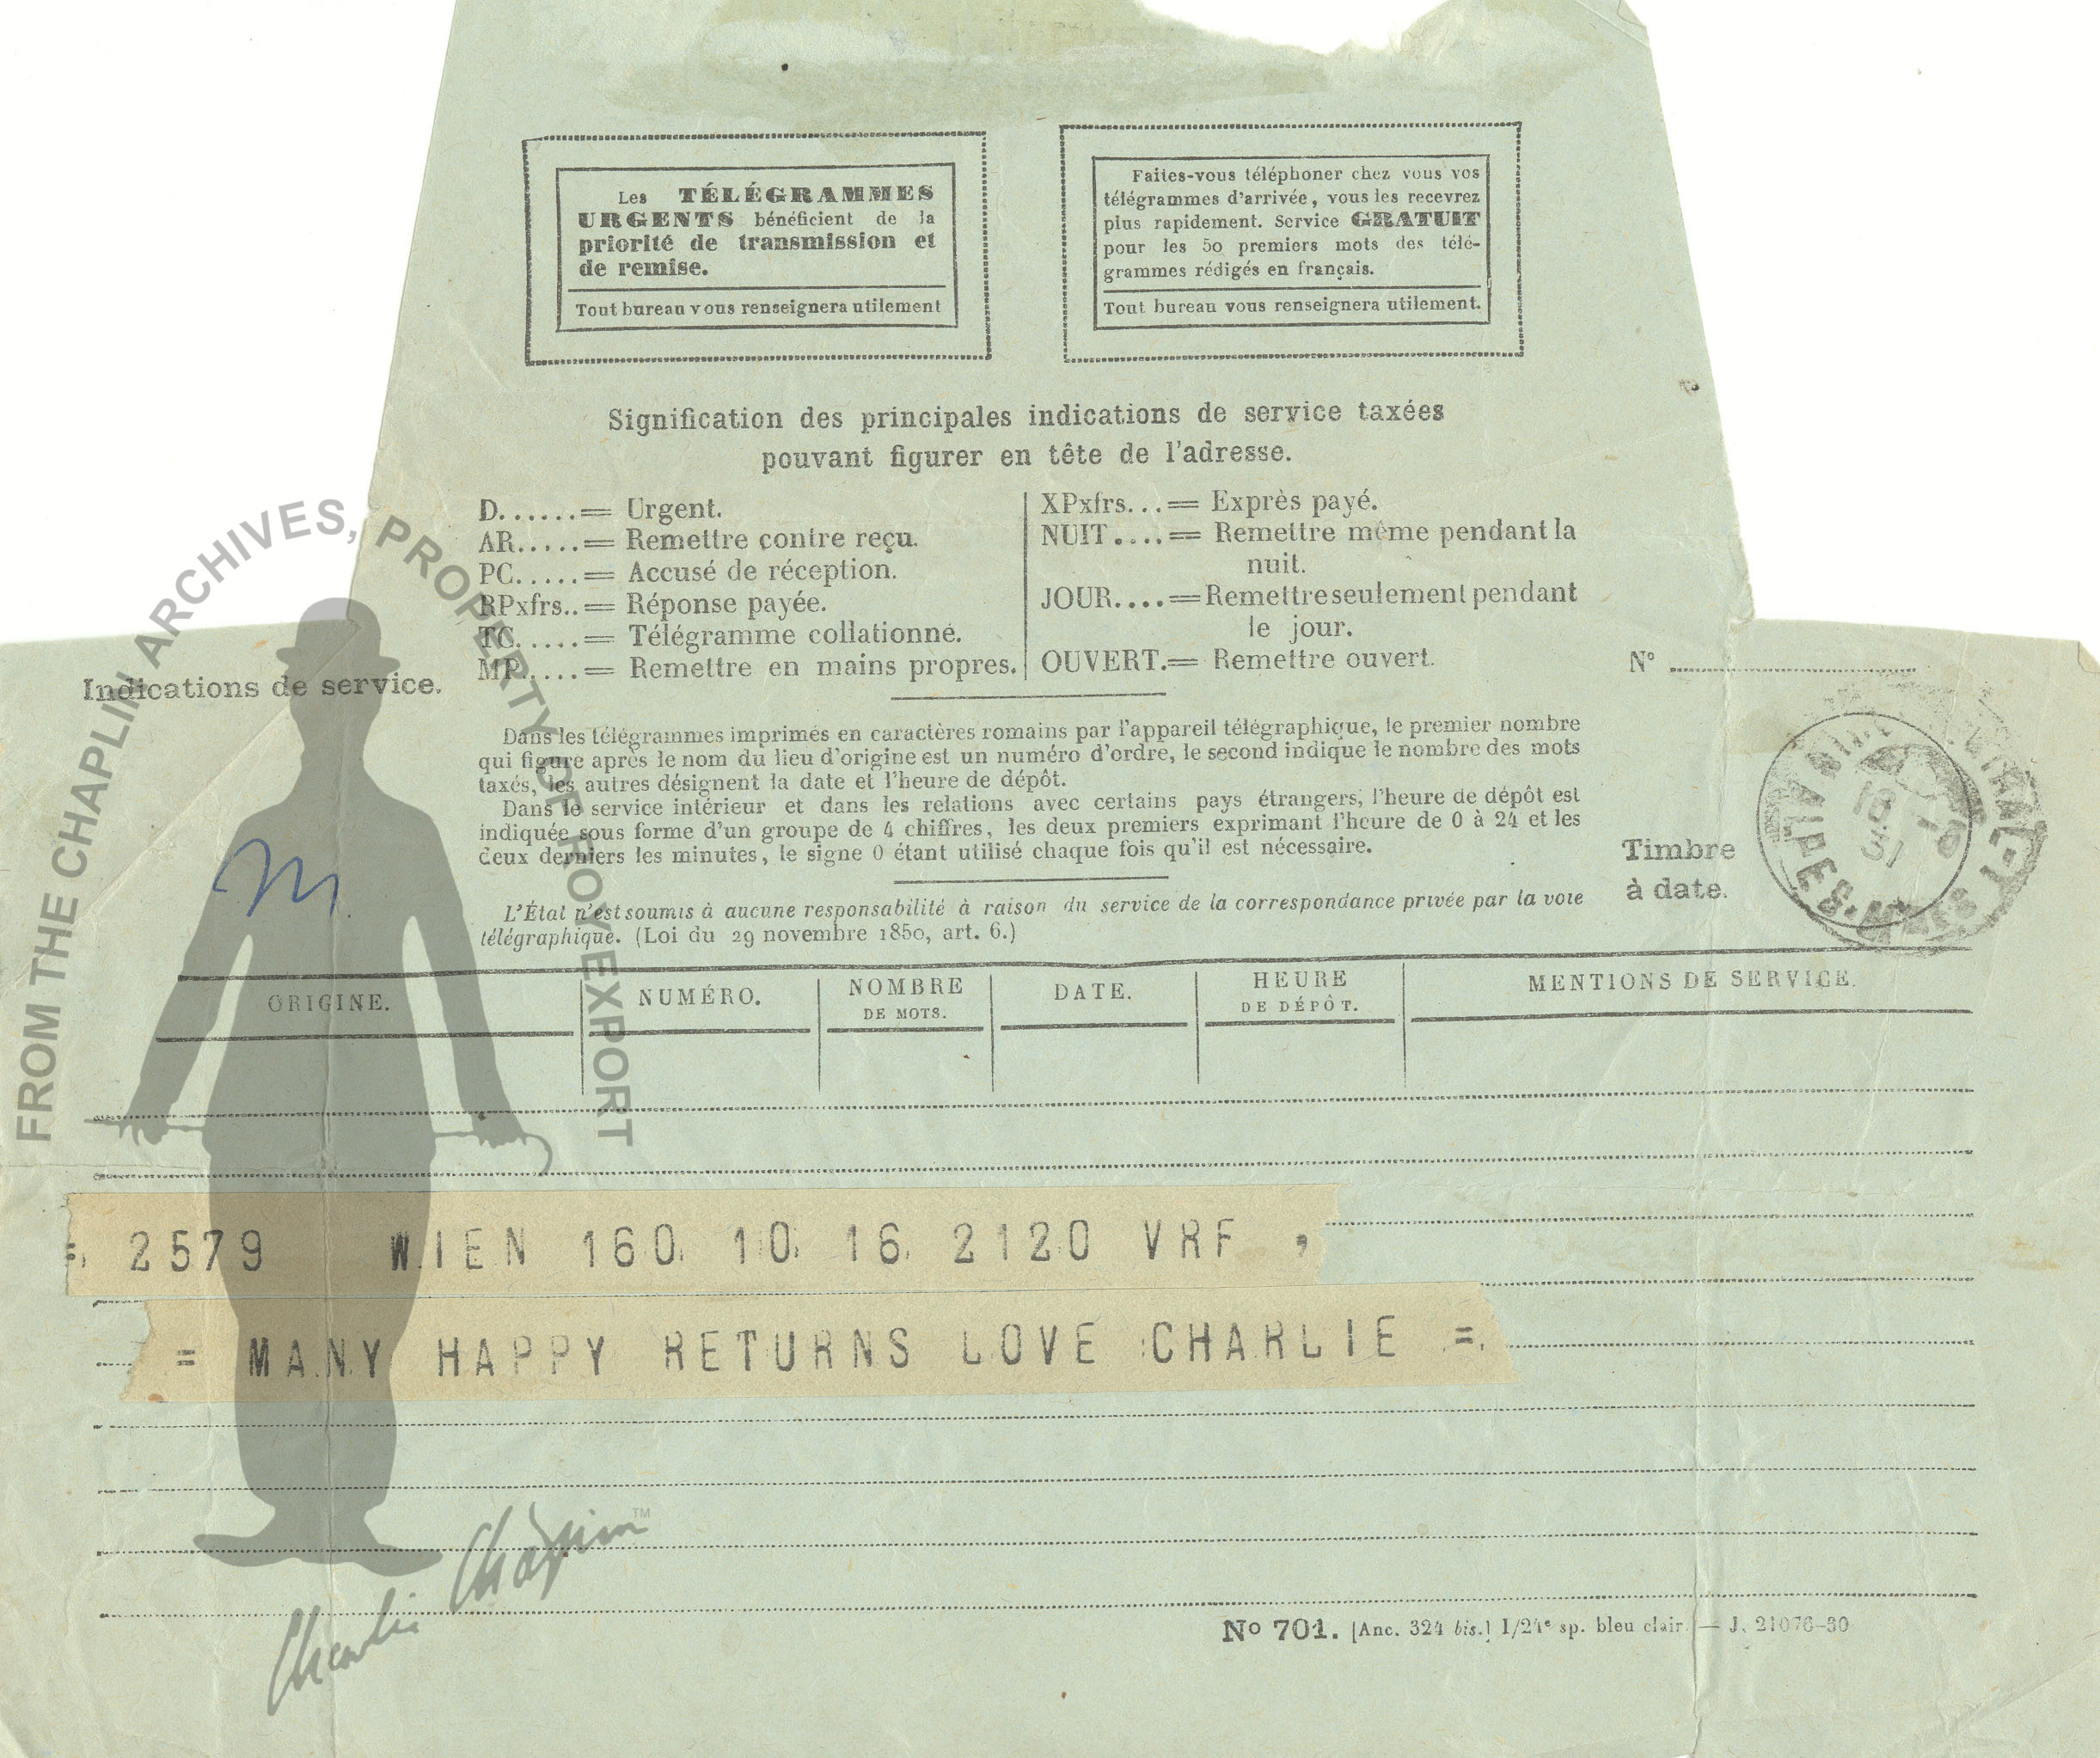 Les TÉLÉGRAMMES
URGENTS bénéficient de la
priorité de transmission et
de remise.
Tout bureau vous renseignera utilement
Faites-vous téléphoner chez vous vos
télégrammes d'arrivée, vous les recevrez
plus rapidement. Service GRATUIT
pour les 50 premiers mots des télé-
grammes rédigés en français.
Tout bureau vous renseignera utilement.
Signification des principales indications de service taxées
pouvant figurer en tête de l'adresse.
D......= Urgent.
AR.....= Remettre contre reçu.
PC.....= Accusé de réception.
RPxfrs..= Réponse payée.
TC.....= Télégramme collationné.
MP.....= Remettre en mains propres.
XPxfrs...= Exprès payé.
NUIT....= Remettre même pendant la
nuit.
JOUR....= Remettre seulement pendant
le jour.
OUVERT.= Remettre ouvert.
Indications de service.
N°
Dans les télégrammes imprimés en caractères romains par l'appareil télégraphique, le premier nombre
qui figure après le nom du lieu d'origine est un numéro d'ordre, le second indique le nombre des mots
taxés, les autres désignent la date et l'heure de dépôt.
Dans le service intérieur et dans les relations avec certains pays étrangers, l'heure de dépôt est
indiquée sous forme d'un groupe de 4 chiffres, les deux premiers exprimant l'heure de 0 à 24 et les
deux derniers les minutes, le signe 0 étant utilisé chaque fois qu'il est nécessaire.
L'État n'est soumis à aucune responsabilité à raison du service de la correspondance privée par la voie
télégraphique. (Loi du 29 novembre 1850, art. 6.)
Timbre
à date.
ORIGINE. NUMÉRO. NOMBRE DE MOTS. DATE. HEURE DE DÉPÔT. MENTIONS DE SERVICE.
= 2579 WIEN 160 10 16 2120 VRF ,
= MANY HAPPY RETURNS LOVE CHARLIE =
N° 701. [Anc. 324 bis.] 1/24e sp. bleu clair. — J. 21076-30
FROM THE CHAPLIN ARCHIVES, PROPERTY OF ROY EXPORT
Charlie Chaplin™